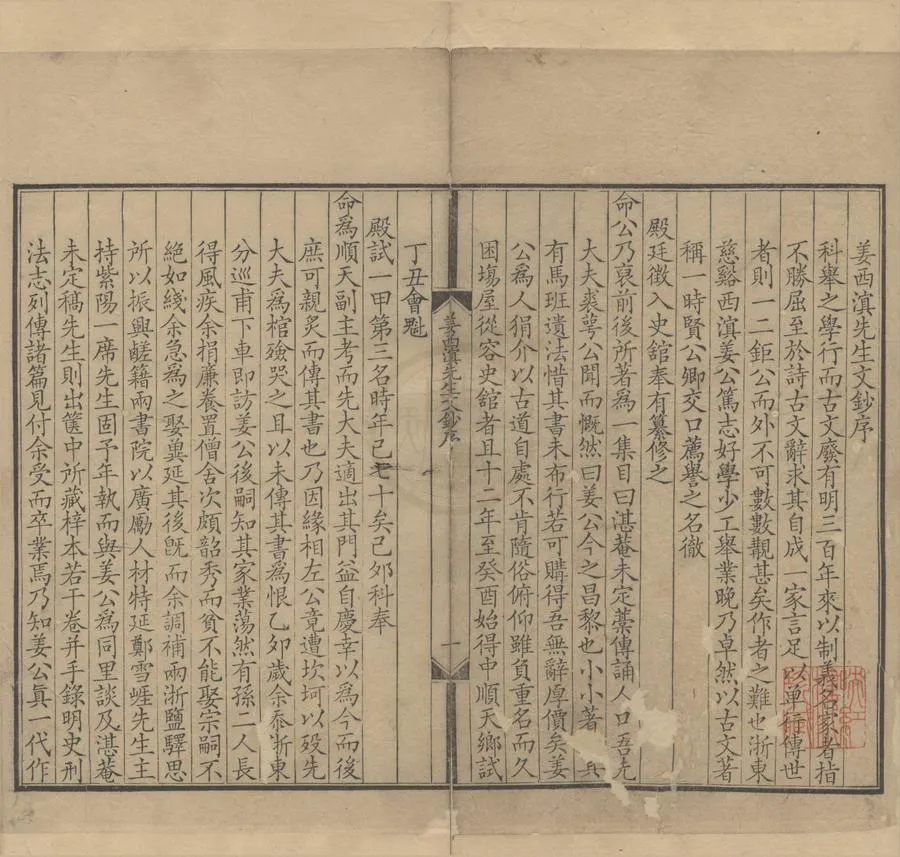 姜西溟先生文鈔序
科舉之學行而古文廢有明三百年來以制義名家者指
不勝屈至於詩古文辭求其自成一家言足以单行傳世
者則一二鉅公而外不可數數覯甚矣作者之難也浙東
慈谿西溟姜公篤志好學少工舉業晚乃卓然以古文著
稱一時賢公卿交口薦譽之名徹
殿廷徵入史舘奉有纂修之
命公乃裒前後所著為一集目曰湛菴未定藁傳誦人口吾先
大夫裘蕚公聞而慨然曰姜公今之昌黎也小小著
有馬班遺法惜其書未布行若可購得吾無辭厚價矣姜
公為人狷介以古道自處不肯隨俗俯仰雖負重名而久
困塲屋從容史館者且十二年至癸酉始得中順天鄉試
姜西溟先生文鈔序
一
丁丑會魁
殿試一甲第三名時年已七十矣己夘科奉
命爲順天副主考而先大夫適出其門益自慶幸以為今而後
庶可親炙而傳其書也乃因緣相左公竟遭坎坷以歿先
大夫為棺殮哭之且以未傳其書爲恨乙夘歲余忝浙東
分巡甫下車即訪姜公後嗣知其家業蕩然有孫二人長
得風疾余捐亷養置僧舍次頗韶秀而貧不能娶宗嗣不
絶如綫余急爲之娶兾延其後旣而余調補兩浙鹽驛思
所以振興鹺籍兩書院以廣勵人材特延鄭雪崕先生主
持紫陽一席先生固予年執而與姜公為同里談及湛菴
未定稿先生則出篋中所藏梓本若干卷并手錄明史刑
法志列傳諸篇見付余受而卒業焉乃知姜公眞一代作